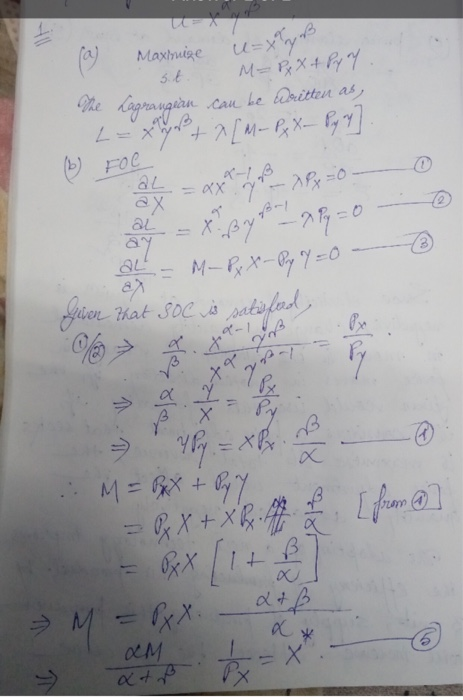 U = X^α Y^β
1.
(a) Maximize U = X^α Y^β
s.t M = P_X X + P_Y Y
The Lagrangian can be written as,
L = X^α Y^β + λ [M - P_X X - P_Y Y]
(b) FOC
∂L/∂X = αX^(α-1) Y^β - λP_X = 0 — ①
∂L/∂Y = X^α · βY^(β-1) - λP_Y = 0 — ②
∂L/∂λ = M - P_X X - P_Y Y = 0 — ③
Given that SOC is satisfied,
①/② ⇒ α/β · X^(α-1) Y^β / X^α Y^(β-1) = P_X/P_Y .
⇒ α/β · Y/X = P_X/P_Y .
⇒ YP_Y = XP_X · β/α — ④
∴ M = P_X X + P_Y Y
= P_X X + XP_X · β/α [from ④]
= P_X X [1 + β/α]
⇒ M = P_X X · (α+β)/α
⇒ αM/(α+β) · 1/P_X = X* . — ⑤